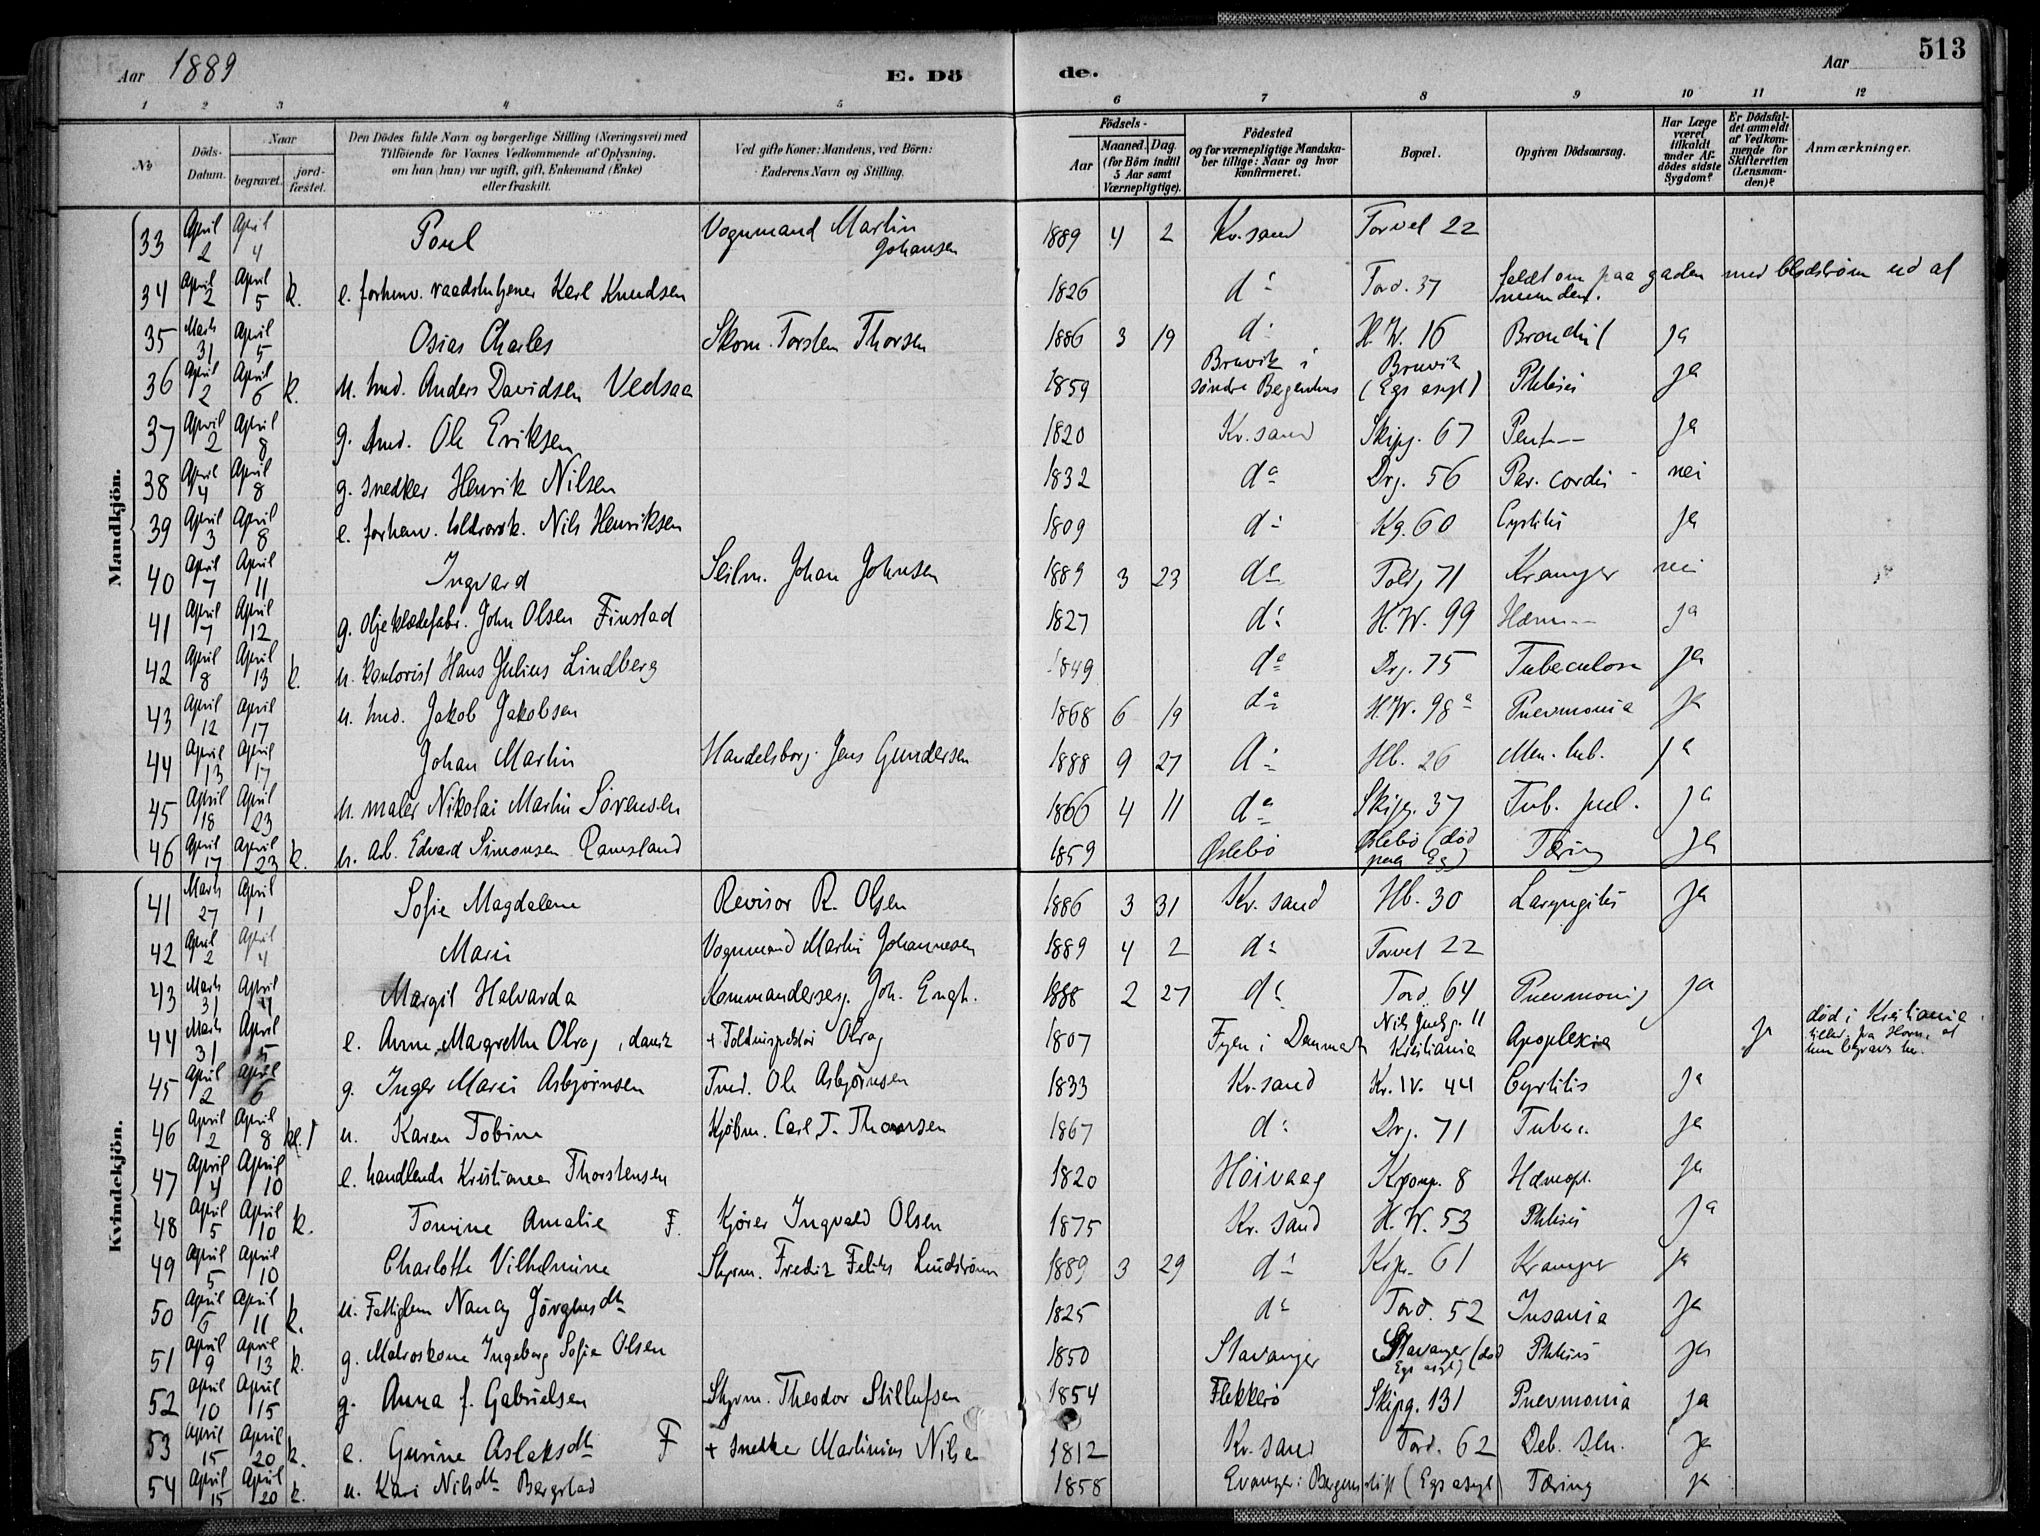 Aar 1889 E. Dö de. Aar 513
1 2 3 4 5 6 7 8 9 10 11 12
No
Döds-Datum.
Naar
begravet.
jord-fæstet.
Den Dödes fulde Navn og borgerlige Stilling (Næringsvei) med
Tilföiende for Voxnes Vedkommende af Oplysning,
om han (hun) var ugift, gift, Enkemand (Enke)
eller fraskilt.
Ved gifte Koner: Mandens, ved Börn:
Faderens Navn og Stilling.
Födsels-
Aar
Maaned. Dag.
(for Börn indtil
5 Aar samt
Værnepligtige).
Födested
og for værnepligtige Mandska-
ber tillige: Naar og hvor
Konfirmeret.
Bopæl.
Opgiven Dödsaarsag.
Har Læge
været
tilkaldt
under Af-
dödes sidste
Sygdom?
Er Dödsfal-
det anmeldt
af Vedkom-
mende for
Skifteretten
(Lensman-
den)?
Anmærkninger.
Mandkjön.
33 April 2 April 4 Poul Vognmand Martin Johansen 1889 4 2 Kr.sand Torvet 22
34 April 2 April 5 k. e. forhenv. raadstutjener Karl Knudsen 1826 do Tord. 37 faldt om paa gaden med blodstrøm ud af munden.
35 Marts 31 April 5 Osias Charles Skom. Torsten Thorsen 1886 3 19 do H.W. 16 Bronchit ja
36 April 2 April 6 k. u. tmd. Anders Davidsen Vedsaa 1859 Bruvik i søndre Bergenhus Bruvik (Egs asyl) Phthisis ja
37 April 2 April 8 g. tmd. Ole Eriksen 1820 Kr.sand Skipg. 67 ja
38 April 4 April 8 g. snedker Henrik Nilsen 1832 do Drg. 56 Par. cordis nei
39 April 3 April 8 e. forhenv. Nils Henriksen 1809 do Kg. 60 Cystitis ja
40 April 7 April 11 Ingvard Seilm. Johan Johnsen 1889 3 23 do Toldg 71 Kramper nei
41 April 7 April 12 g. oljeklædefabr. John Olsen Finstad 1827 do H.W. 99 ja
42 April 8 April 13 k. u. kontorist Hans Julius Lindberg 1849 do Drg. 75 Tuberculose ja
43 April 12 April 17 u. tmd. Jakob Jakobsen 1868 6 19 do H.W. 98a Pnevmonia ja
44 April 13 April 17 Johan Martin Handelsborg. Jens Gundersen 1888 9 27 do Hb. 26 Men. tub. ja
45 April 18 April 23 u. maler Nikolai Martin Sörensen 1866 4 11 do Skipg. 37 Tub. pul. ja
46 April 17 April 23 k. u. arb. Edvard Simonsen Ramsland 1859 Øslebö Øslebö (död paa Eg) Tæring ja
Kvindekjön.
41 Marts 27 April 1 Sofie Magdalene Revisor R. Olsen 1886 3 31 Kr.sand Hb. 30 Laryngitis ja
42 April 2 April 4 Marie Vognmand Martin Johannesen 1889 4 2 do Torvet 22
43 Marts 31 April 4 Margit Halvarda Kommandersesj. Joh. Engh. 1888 2 27 do Tord. 64 Pnevmoni ja
44 Marts 31 April 5 e. Anne Margrethe Olrog, dansk + Toldinspektør Olrog 1807 Fyen i Danmark Nils Juelsg. 11 Kristiania Apoplexia ja död i Kristiania
45 April 2 April 6 g. Inger Marie Asbjørnsen Tmd. Ole Asbjørnsen 1833 Kr.sand Kr. IV. 44 Cystitis ja
46 April 2 April 8 kl. 1 u. Karen Tobine Kjøbm. Carl T. Thomsen 1867 do Drg. 71 Tuberc. ja
47 April 4 April 10 e. handlende Kristianea Thorstensen 1820 Höivaag Kronpr. 8 Hæmopt. ja
48 April 5 April 10 k. Tomine Amalie F. Kjører Ingvald Olsen 1875 Kr.sand H.W. 53 Phthisis ja
49 April 5 April 10 Charlotte Vilhelmine Styrm. Fredrik Feliks Lindstrøm 1889 3 29 do Krpr. 61 Kramper ja
50 April 6 April 11 k. u. Fattiglem Nancy Jörgensdtr 1825 do Tord. 52 Insania ja
51 April 9 April 13 k. g. Matroskone Ingeborg Sofie Olsen 1850 Stavanger Stavanger (död Egs asyl) Phthisis ja
52 April 10 April 15 g. Anna f. Gabrielsen Styrm. Theodor Stillufsen 1854 Flekkerö Skipg. 131 Pnevmonia ja
53 April 15 April 20 k. e. Gurine Aslaksdtr F + snedker Martinius Nilsen 1812 Kr.sand Tord. 62 Deb. sen. ja
54 April 15 April 20 k. u. Kari Nilsdtr Bergstad 1858 Evanger i Bergens stift (Egs asyl) Tæring ja